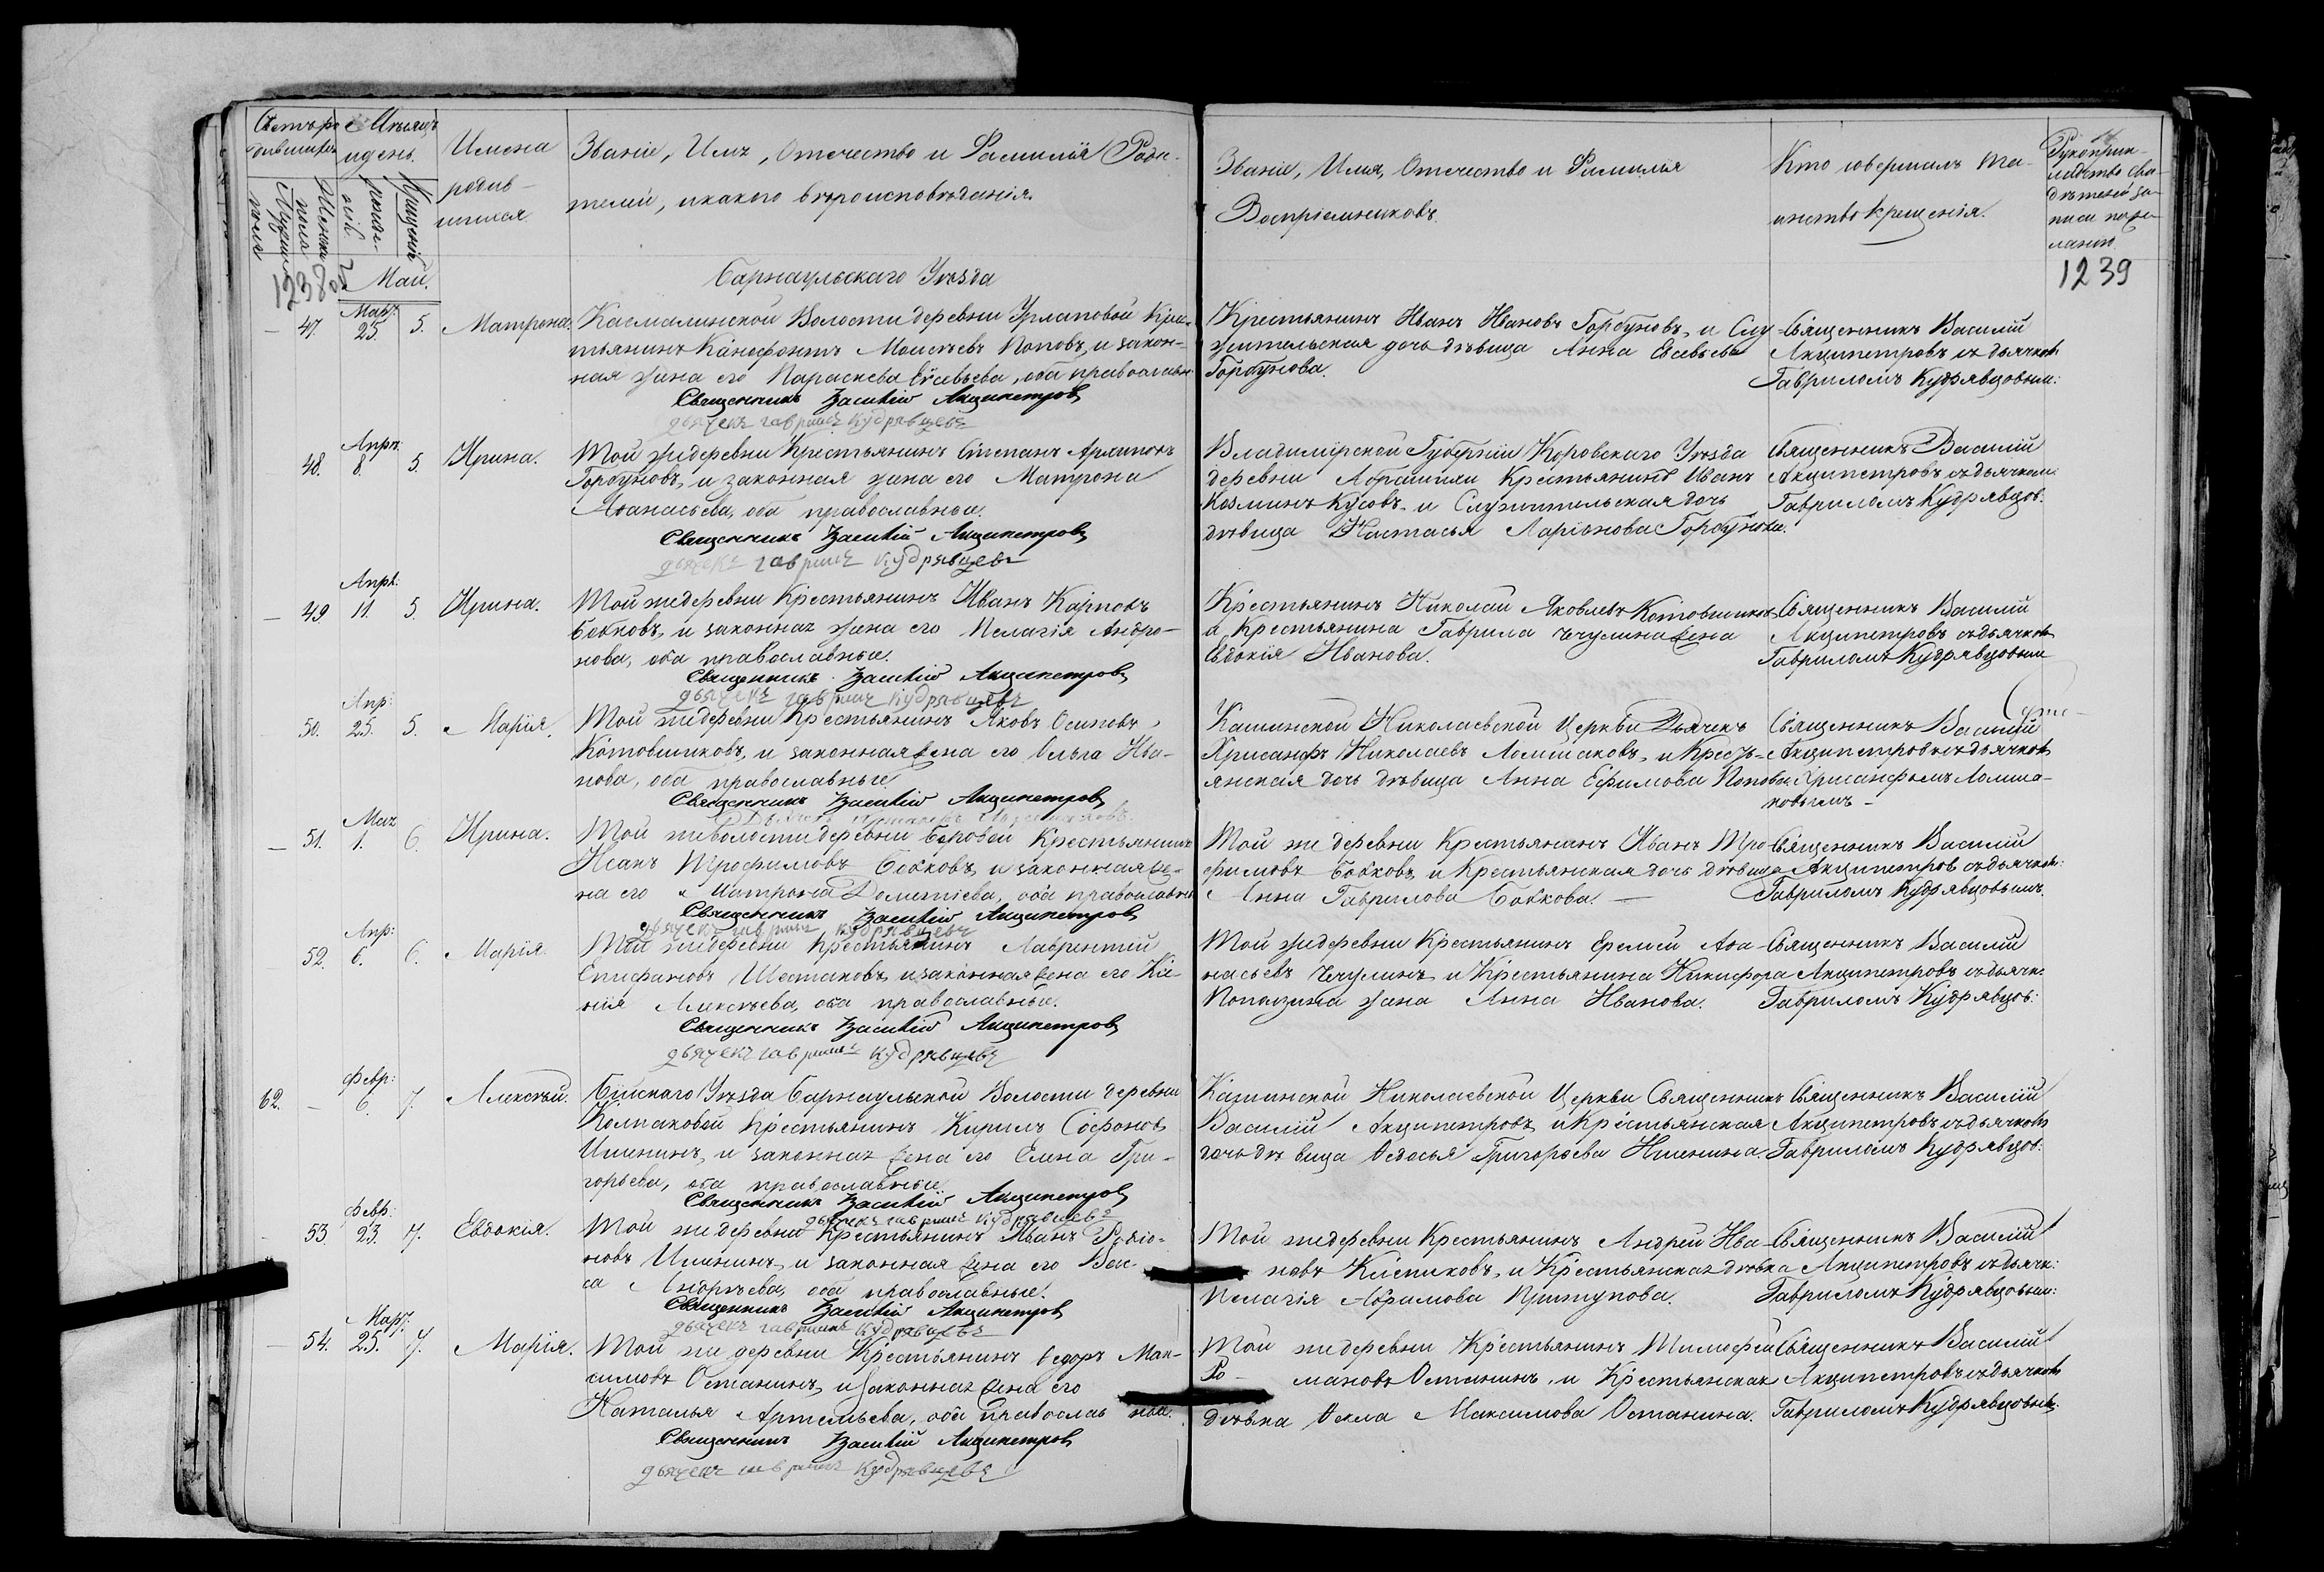 Счетъ ро-
дившихся
Мѣсяцъ
и день.
Имена
родив-
шихся
Званіе, Имя, Отечество и Фамилія Роди-
телей, и какого вѣроисповѣданія.
Званіе, Имя, Отечество и Фамилія
Воспріемниковъ.
Кто совершалъ та-
инство крещенія.
Рукоприк-
ладство сви-
дѣтелей за-
писи по же-
ланію
Мужеска
пола
Женска
пола
рожде-
нія
Крещенія
1238
1239
Маи.
Барнаульскаго Уѣзда
47.
Мар:
25.
5.
Матрона.
Касмалинской Волости деревни Урлаповой Крес-
тьянинъ Канофонтъ Моисѣевъ Поповъ, и закон-
ная жена его Параскева Евсевьева, оба православн
Священникъ Василій Акципетровъ
дьячекъ гаврилъ кудрявцевъ
Крестьянинъ Иванъ Ивановъ Горбуновъ, и Слу-
жительская дочь дѣвица Анна Евсевьева
Горбунова.
Священникъ Василій
Акципетровъ съ дьячком
Гавриломъ Кудрявцовым:
48.
Апрѣ:
8
5.
Ирина.
Той же деревни Крестьянинъ Степанъ Архиповъ
Горбуновъ, и законная жена его Матрона
Аѳанасьева, оба православные.
Священникъ Василій Акципетровъ
дьячекъ гаврилъ кудрявцевъ
Владимірской Губерніи Коровскаго Уѣзда
деревни Абрамихи Крестьянинъ Иванъ
Козминъ Кусовъ, и Служительская дочь
дѣвица Настасья Ларіонова Горбунова.
Священникъ Василій
Акципетровъ съ дьячком
Гавриломъ Кудрявцов:
49
Апрѣ:
11.
5.
Ирина.
Той же деревни Крестьянинъ Иванъ Карповъ
Бобковъ, и законная жена его Пелагія Андро-
нова, оба православные.
Священникъ Василій Акципетровъ
дьячекъ гаврилъ кудрявцевъ
Крестьянинъ Николай Яковлевъ Котовщиковъ
и Крестьянина Гаврила Чечулина жена
Евдокія Иванова.
Священникъ Василій
Акципетровъ съ дьячком
Гавриломъ Кудрявцовым
50.
Апр:
25.
5.
Марія.
Той же деревни Крестьянинъ Яковъ Осиповъ
Котовщиковъ, и законная жена его Ѳельга Ива-
нова, оба православные.
Священникъ Василій Акципетровъ
Кашинской Николаевской Церкви Дьячекъ
Хрисанфъ Николаевъ Ломшаковъ, и Кресть-
янская дочь дѣвица Анна Ефимова Попова
Священникъ Василій
Акципетровъ съ дьячком
Хрисанфомъ Ломша-
ковымъ -
51.
Мая
1.
6.
Ирина.
Той же Волости деревни Боровой Крестьянинъ
Исакъ Трофимовъ Бобковъ, и законная же-
на его Матрона Дометіева, оба православн
Священникъ Василій Акципетровъ
дьячекъ гаврилъ кудрявцевъ
Той же деревни Крестьянинъ Иванъ Тро-
фимовъ Бобковъ, и Крестьянская дочь дѣвица
Анна Гаврилова Бобкова. —
Священникъ Василій
Акципетров съ дьячком:
Гавриломъ Кудрявцовымъ.
52.
Апр:
6.
6.
Марія.
Той же деревни Крестьянинъ Лаврентій
Епифановъ Шестаковъ, и законная жена его Ксе-
нія Алексѣева, оба православные.
Священникъ Василій Акципетровъ
дьячекъ гаврилъ кудрявцевъ
Той же деревни Крестьянинъ Еремей Аѳа-
насьевъ Чечулинъ, и Крестьянина Никифора
жена Анна Иванова.
Священникъ Василій
Акципетровъ съ дьячк.
Гавриломъ Кудрявцов:
62.
Февр:
6.
7.
Алексѣй.
Бійскаго Уѣзда Барнаульской Волости деревни
Колпаковой Крестьянинъ Кирилъ Софонов
Ишенинъ, и законная жена его Елена Гри-
горьева, оба православные
Священникъ Василій Акципетровъ
дьячекъ гаврилъ кудрявцевъ
Кашинской Николаевской Церкви Священникъ
Василій Акципетровъ, и Крестьянская
дочь дѣвица Ѳедосья Григорьева Ишенина.
Священникъ Василій
Акципетровъ съ дьячком
Гавриломъ Кудрявцов:
53.
Февр:
23.
7.
Евдокія.
Той же деревни Крестьянинъ Иванъ Родіо-
новъ Ишенинъ, и законная жена его Вас-
са Андреѣева, оба православные.
Священникъ Василій Акципетровъ
дьячекъ гаврилъ кудрявцевъ
Той же деревни Крестьянинъ Андрей Ива-
новъ и Крестьянская дѣвка
Пелагія Абрамова Притупова.
Священникъ Василій
Акципетровъ съ дьячк:
Гавриломъ Кудрявцовым:
54.
Мар:
25.
7.
Марія.
Той же деревни Крестьянинъ Ѳедоръ Мак-
симовъ Останинъ, и законная жена его
Наталья Артемьева, оба православные.
Священникъ Василій Акципетровъ
дьячекъ гаврилъ кудрявцевъ
Той же деревни Крестьянинъ Тимофей
Ро- мановъ Останинъ, и Крестьянская
дѣвка Ѳекла Максимова Останина.
Священникъ Василій
Акципетровъ съ дьячком
Гавриломъ Кудрявцовым.